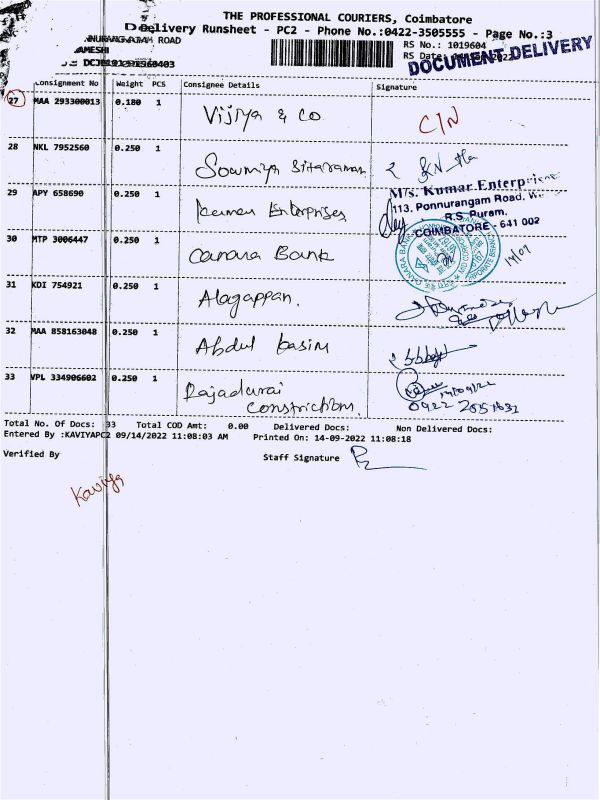 THE PROFESSIONAL COURIERS, Coimbatore
Delivery Runsheet - PC2 - Phone No.:0422-3505555 - Page No.:3
ROAD
RS No.: 1019604
RS Date:
DOCUMENT DELIVERY
Consignment No Weight PCS Consignee Details Signature
27 MAA 293300013 0.180 1 Vijiya & co C/N
28 NKL 7952560 0.250 1 Sowmiya Sitaraman
29 APY 658690 0.250 1 Kumar Enterprises
M/s. Kumar Enterprises
113, Ponnurangam Road,
R.S. Puram,
COIMBATORE - 641 002
30 MTP 3006447 0.250 1 Canara Bank
31 KDI 754921 0.250 1 Alagappan.
32 MAA 858163048 0.250 1 Abdul kasim
33 VPL 334906602 0.250 1 Rajadurai
constrictions.
14/09/22
Total No. Of Docs: 33 Total COD Amt: 0.00 Delivered Docs: Non Delivered Docs:
Entered By :KAVIYAPC2 09/14/2022 11:08:03 AM Printed On: 14-09-2022 11:08:18
Verified By Staff Signature
Kaviya